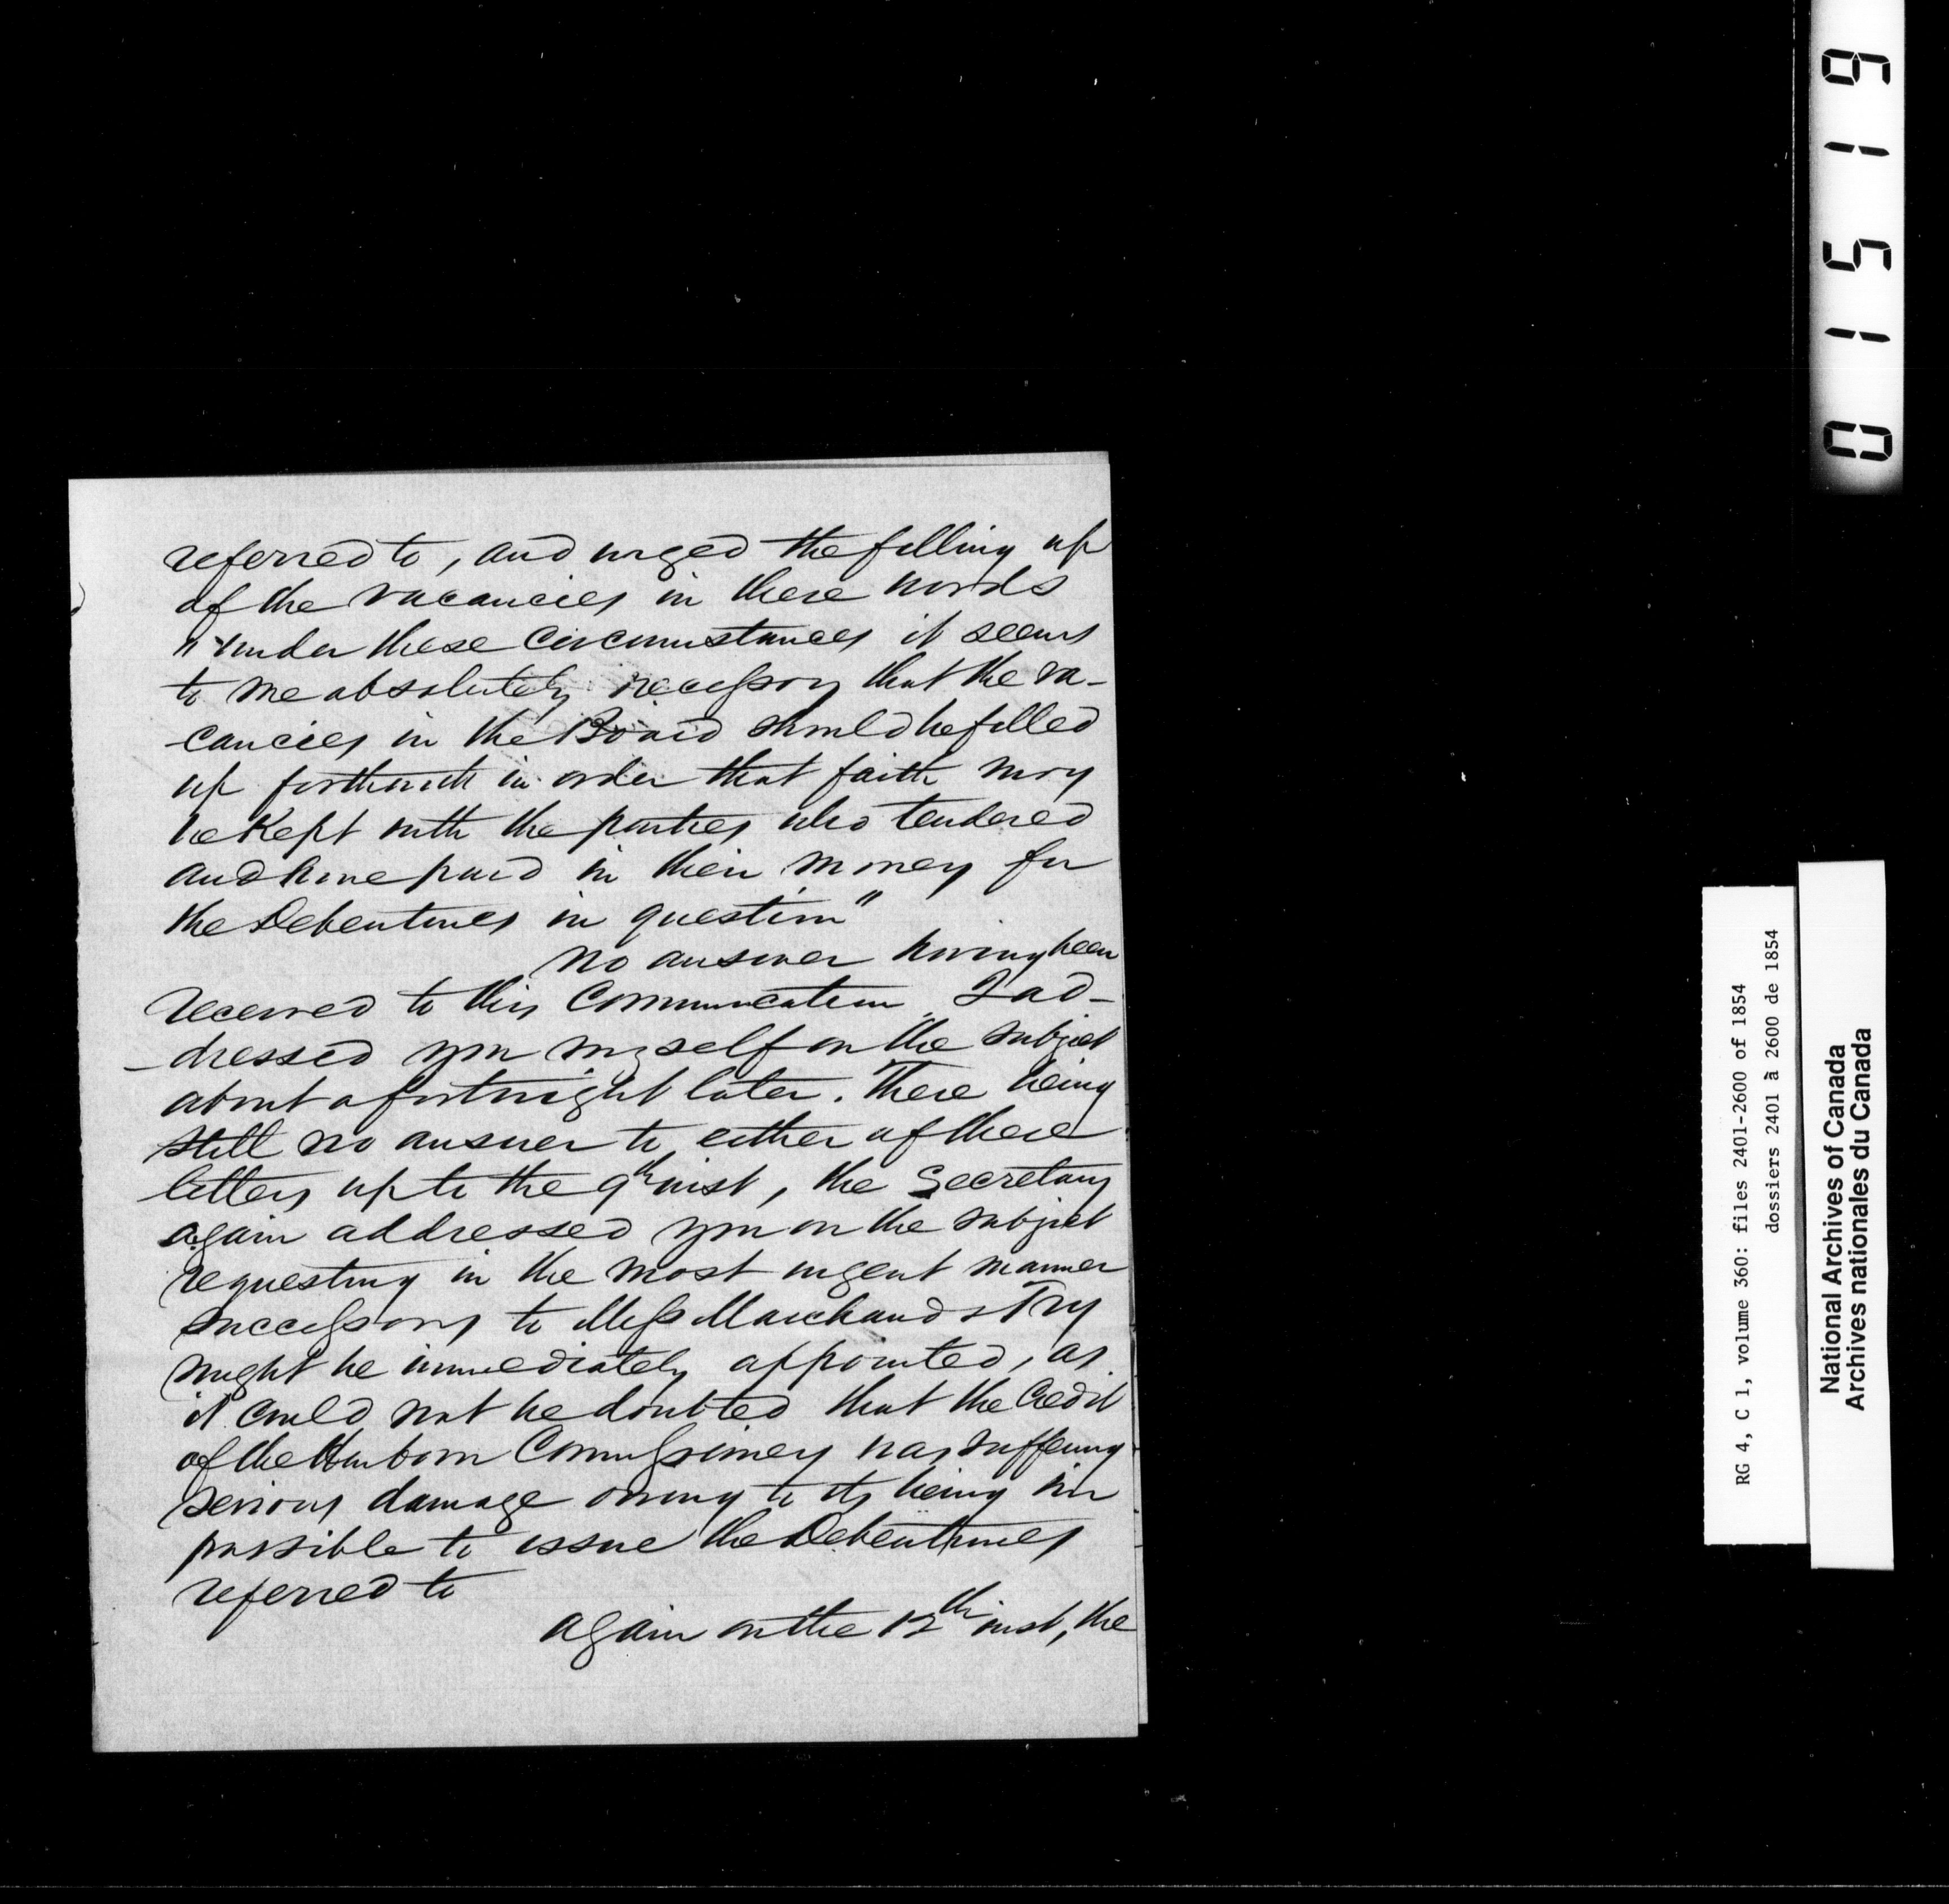 referred to, and urged the filling up
of the vacancies in these words
"under these circumstances it seems
to me absolutely necessary that the va-
-cancies in the Board should be filled
up forthwith in order that faith may
be kept with the parties who tendered
and have paid in their money for
the Debentures in question"
No answer having been
received to this Communication, I ad-
-dressed you myself on the subject
about a fortnight later. There being
still no answer to either of these
letters up to the 9th inst, the Secretary
again addressed you on the subject
requesting in the most urgent manner
successors to Mess Marchand & Try
might be immediately appointed, as
it could not be doubted that the Credit
of the Harbour Commissioners was suffering
serious damage owing to its being im
possible to issue the Debentures
referred to
Again on the 12th inst, the
01519
RG 4, C 1, volume 360: files 2401-2600 of 1854
dossiers 2401 à 2600 de 1854
National Archives of Canada
Archives nationales du Canada